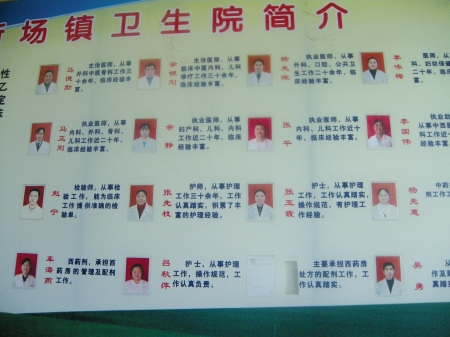 场镇卫生院简介
性
乙
定
主治医师，从事
外科中医骨科工作三
十余年，临床经验丰
富。
主治医师，从事
临床中医内科、儿科
诊疗工作三十余年，
临床经验丰富。
执业医师，从事
外科、口腔、公共卫
生工作二十余年，临
床经验丰富。
李咏梅
医师，从
科、妇幼保健
二十年，临
富。
马正刚
执业医师，从事
内科、外科、骨科、
儿科工作近二十年，
临床经验丰富。
余静
执业医师，从事
妇产科、儿科、内科
工作近二十余年，临
床经验丰富。
张平
执业医师，从事
内科、儿科工作近十
年，临床经验丰富。
李国伟
执业
从事中西医
科工作近
经验丰富。
赵宁
检验师，从事检
验工作，能为临床
工作提供准确的检
验单。
张先枝
护师，从事护理
工作三十余年，工
作认真踏实，积累了丰
富的护理经验。
张玉霞
护士，从事护理
工作，工作认真踏实，
操作规范，有护理工
作经验。
杨先惠
中药
剂工作
车海燕
西药剂，承担西
药房的管理及配剂
工作。
吕秋萍
护士，从事护理
工作，操作规范，工
作认真负责。
主要承担西药房
处方的配剂工作，工
作认真踏实。
吴勇